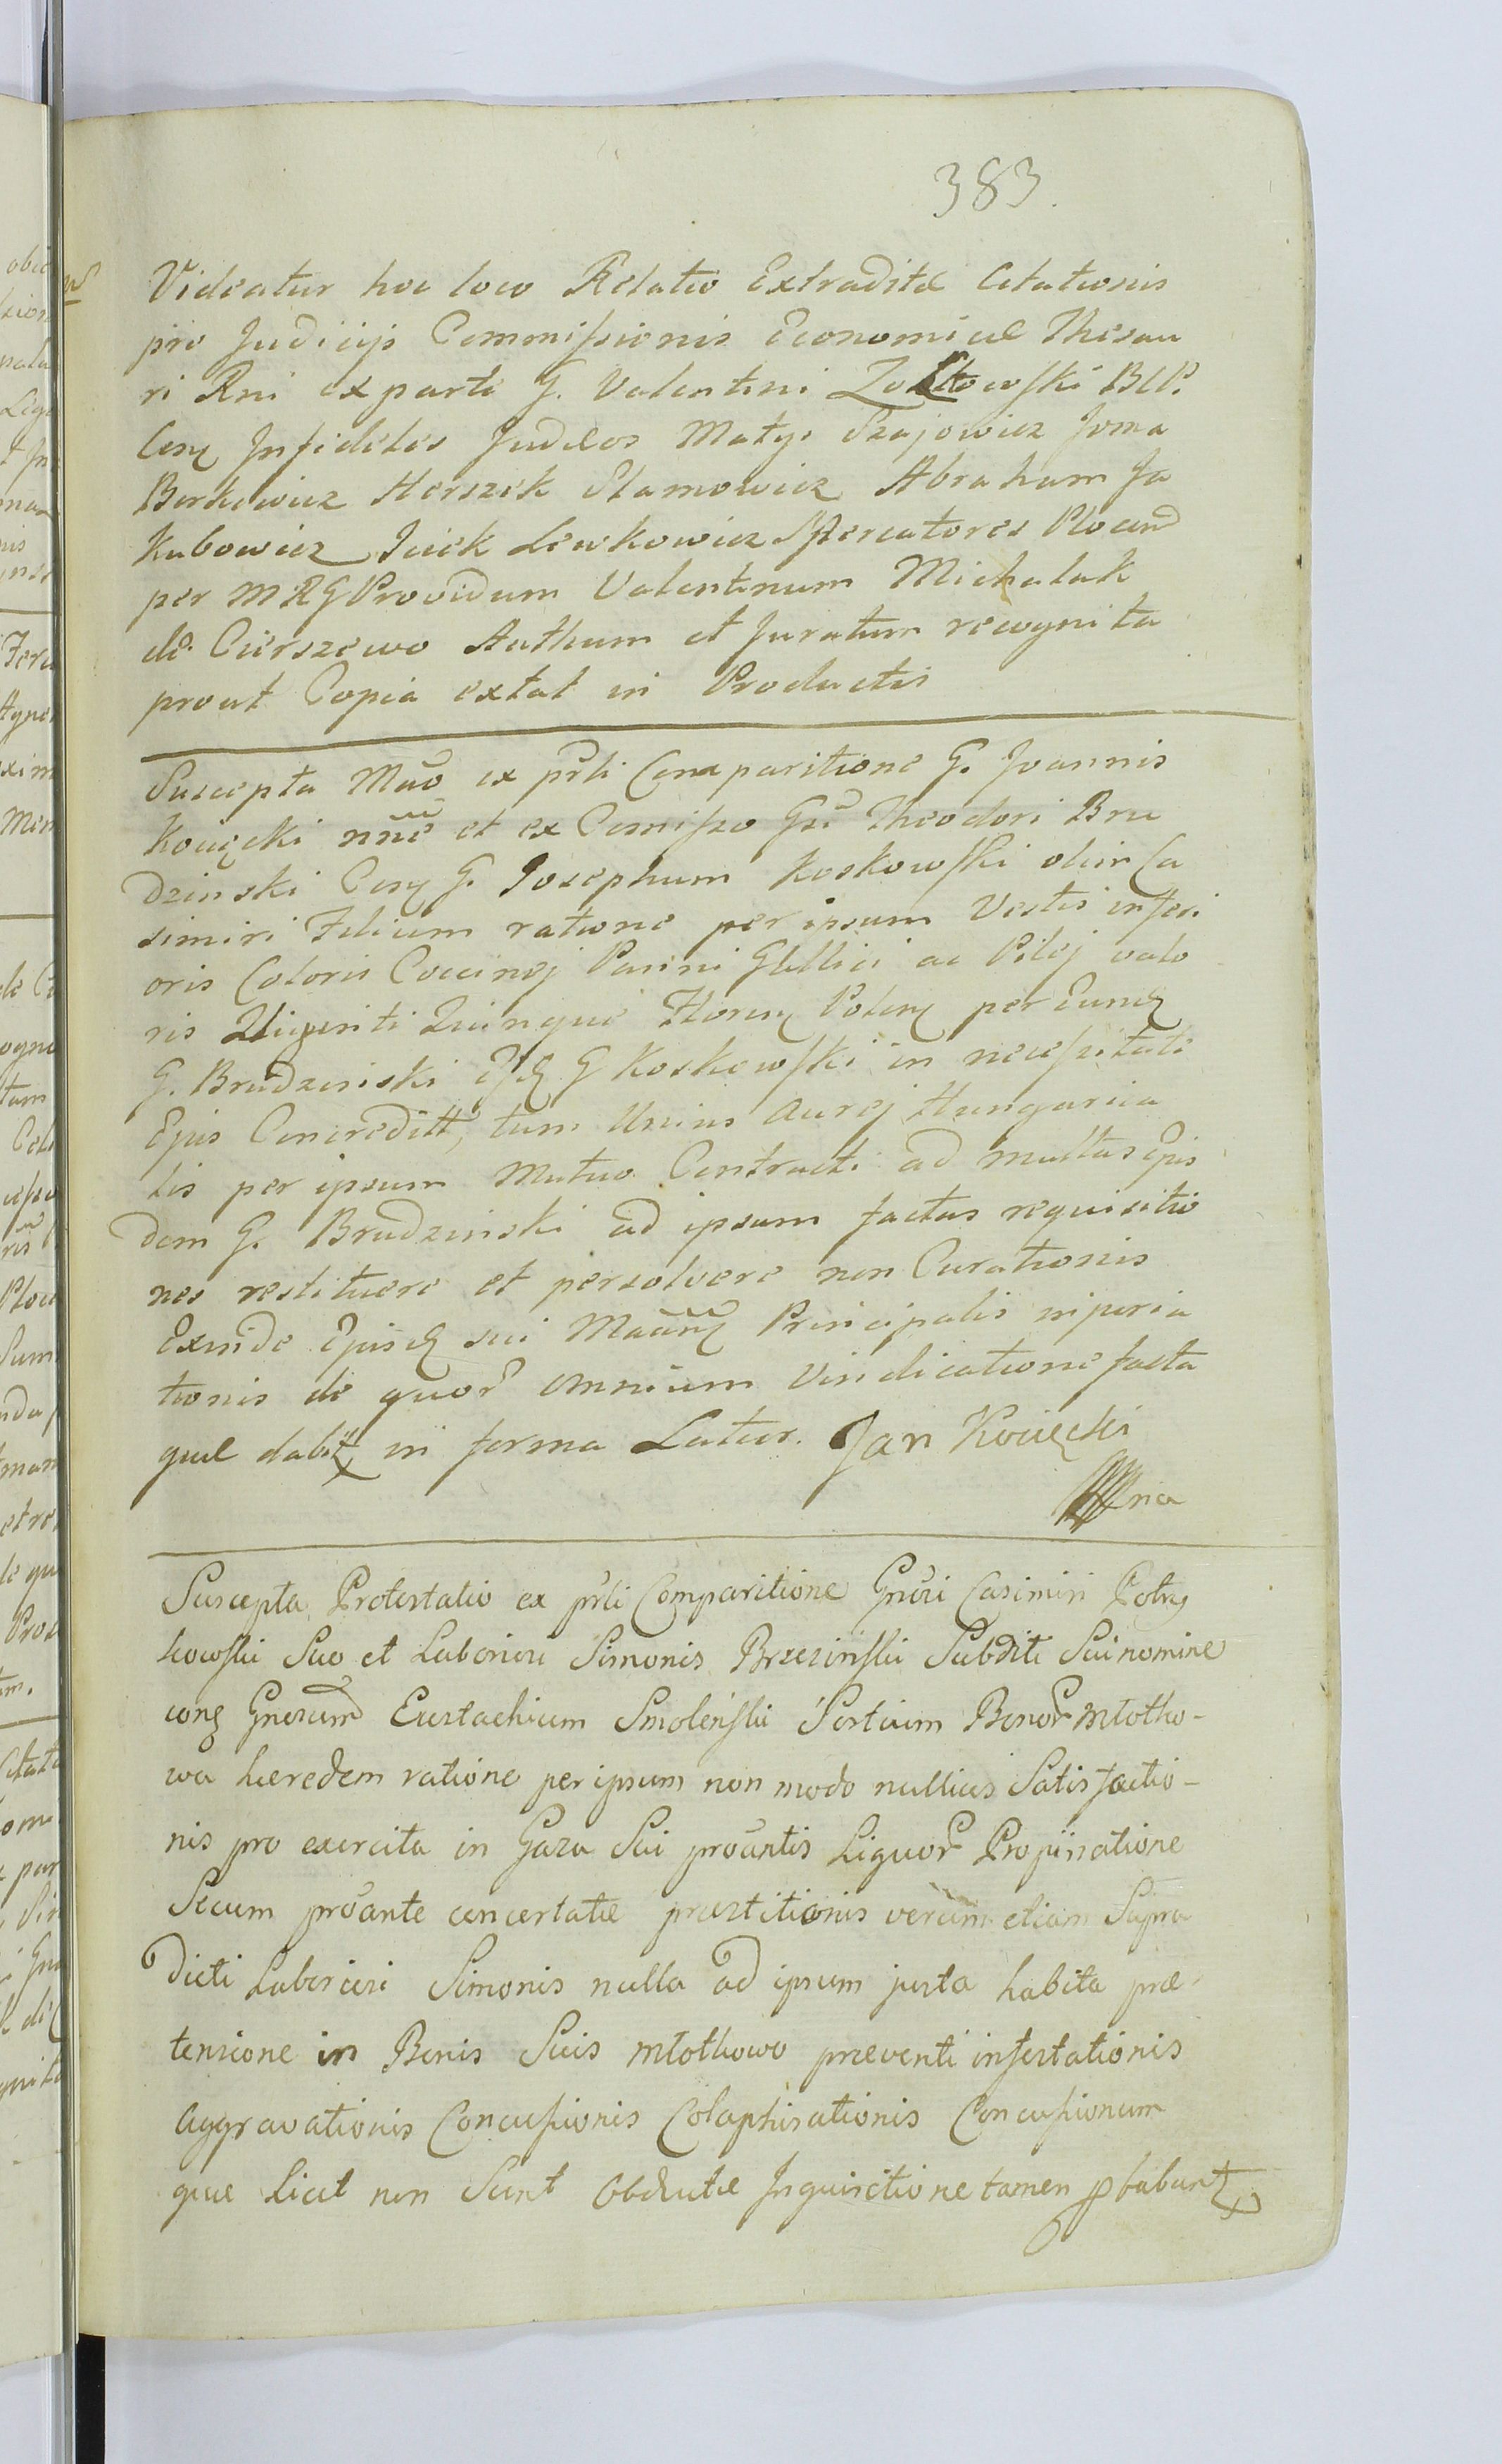 383.
Videatur hoc loco Relatio Extraditæ Citationis
pro Judicijs Commissionis Economicæ Thesau
ri Rni ex parte G. Valentini Zołtowski BCP.
Conq Infideles Judæos Matys Szajowicz Joma
Berkowicz Herszek Slamowicz Abraham Ja
kubowicz Icek Lewkowicz Mercatores Plocen
per MRG Providum Valentinum Michalak
de Cierszewo Authum et Juratum recognita
prout Copia extat in Productis
Suscepta Mäo ex prli Comparitione G. Joannis
Kocięcki nñe et ex Comisso Gsi Theodori Bru
dzinski Conq G. Josephum Koskowski olim Ca
simiri Filium ratione per ipsum Vestis inferi
oris Coloris Coccinej Panni Gallici ac Pilej valo
ris Viginti Quinque Floren Polon per Eund
G. Brudzinski G Koskowski in necessitate
Ejus Concreditt, tum Unius Aurej Hungarica
lis per ipsum Mutuo Contracti ad multas Ejus
dem G. Brudzinski ad ipsum factas requisitio
nes restituere et persolvere non Curationis
Exinde Ejusd sui Maänq Principalis injuria
tionis de quor omnium Vindicatione facta
quæ dabitz in forma Latior. Jan Kocięcki
ma
Suscepta Protestatio ex prli Comparitione Gnösi Casimiri Potrz
kowski Suo et Laboriosi Simonis Brzezinski Subditi Sui nomine
conq Gnosum Eustachium Smolenski Sortium Bonor Młotko-
wa hæredem ratione per ipsum non modo nullius Satisfactio-
nis pro exercita in Gaza Sui proäntis Liquor Propinatione
Secum proante concertatæ præstitionis verum etiam Supra
dicti Laboriosi Simonis nulla ad ipsum justa habita præ-
tensione in Bonis Suis Młotkowo præventi infestationis
aggravationis Concussionis Colaphisationis Concussionum
quæ Licet non Sunt Obductæ Inquisitione tamen pbabuntz